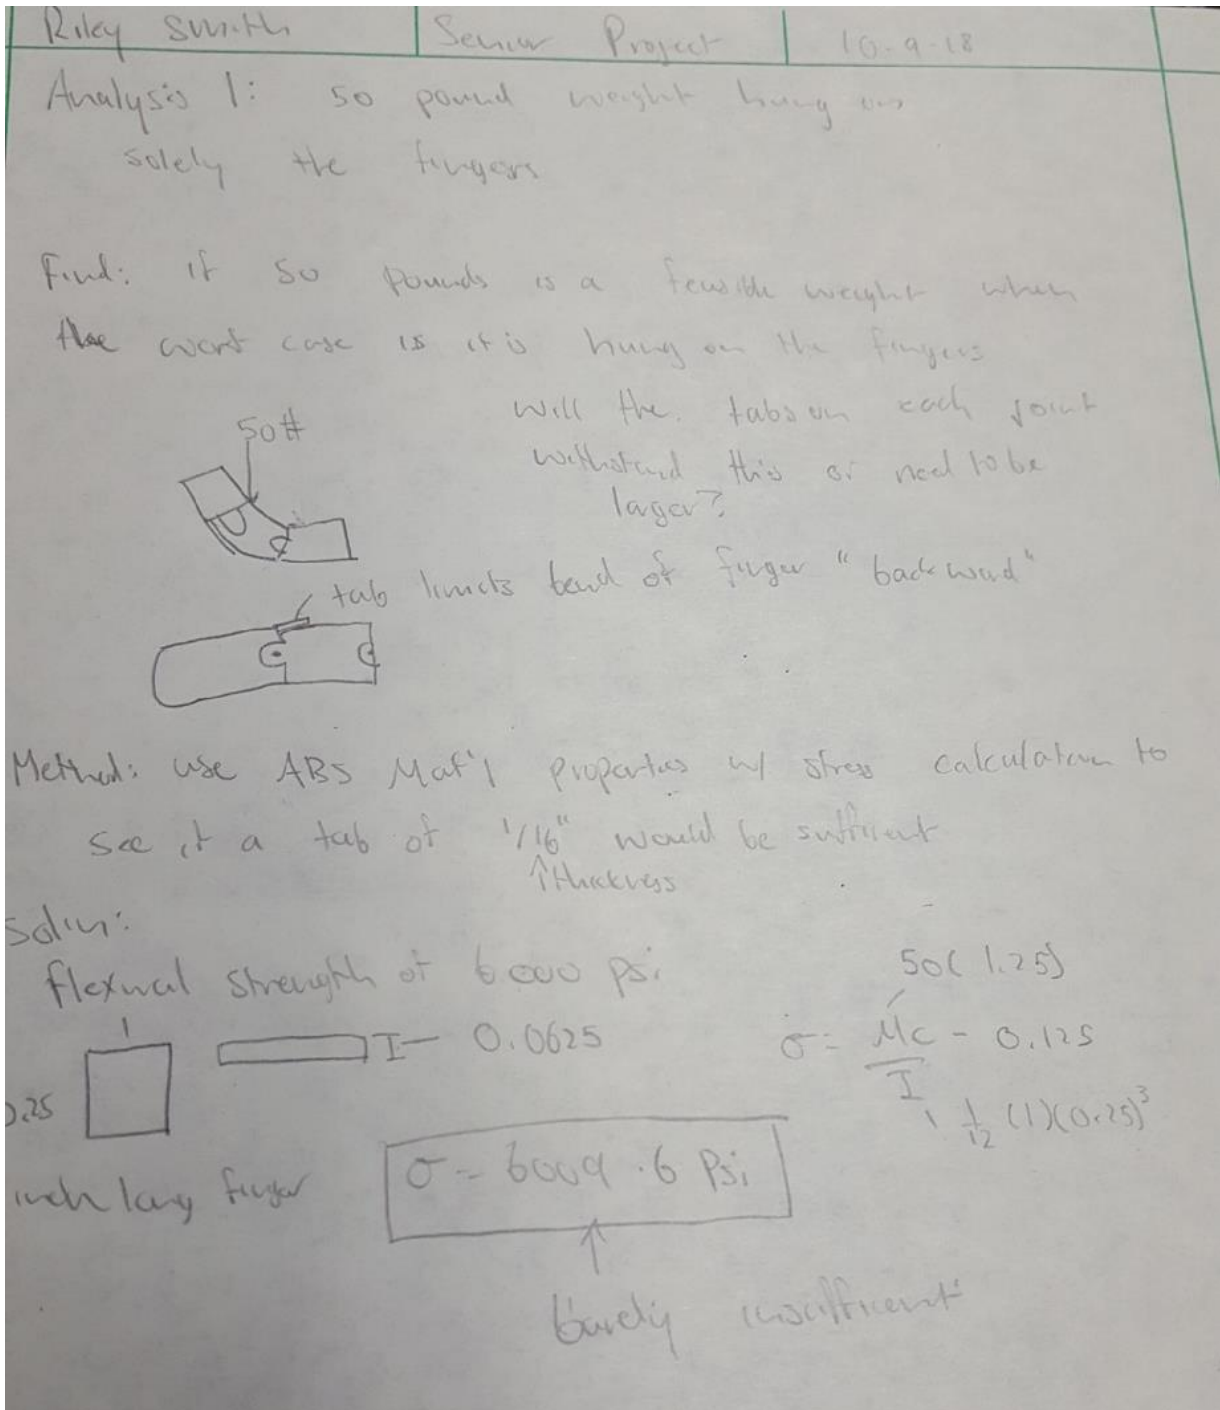 Riley Smith Senior Project 10-9-18
Analysis 1: 50 pound weight hung on
solely the fingers
Find: if 50 pounds is a feasible weight when
the worst case is it is hung on the fingers
will the tabs on each joint
50#
withstand this or need to be
larger?
tab limits bend of finger "backward"
Method: use ABS Mat'l properties w/ stress calculation to
see if a tab of 1/16" would be sufficient
↑thickness
Sol'n:
flexural strength of 6000 psi
50(1.25)
1
I- 0.0625
σ = Mc - 0.125
I
0.25
1/12 (1)(0.25)³
inch long finger
σ = 6009.6 Psi
↑
barely insufficient